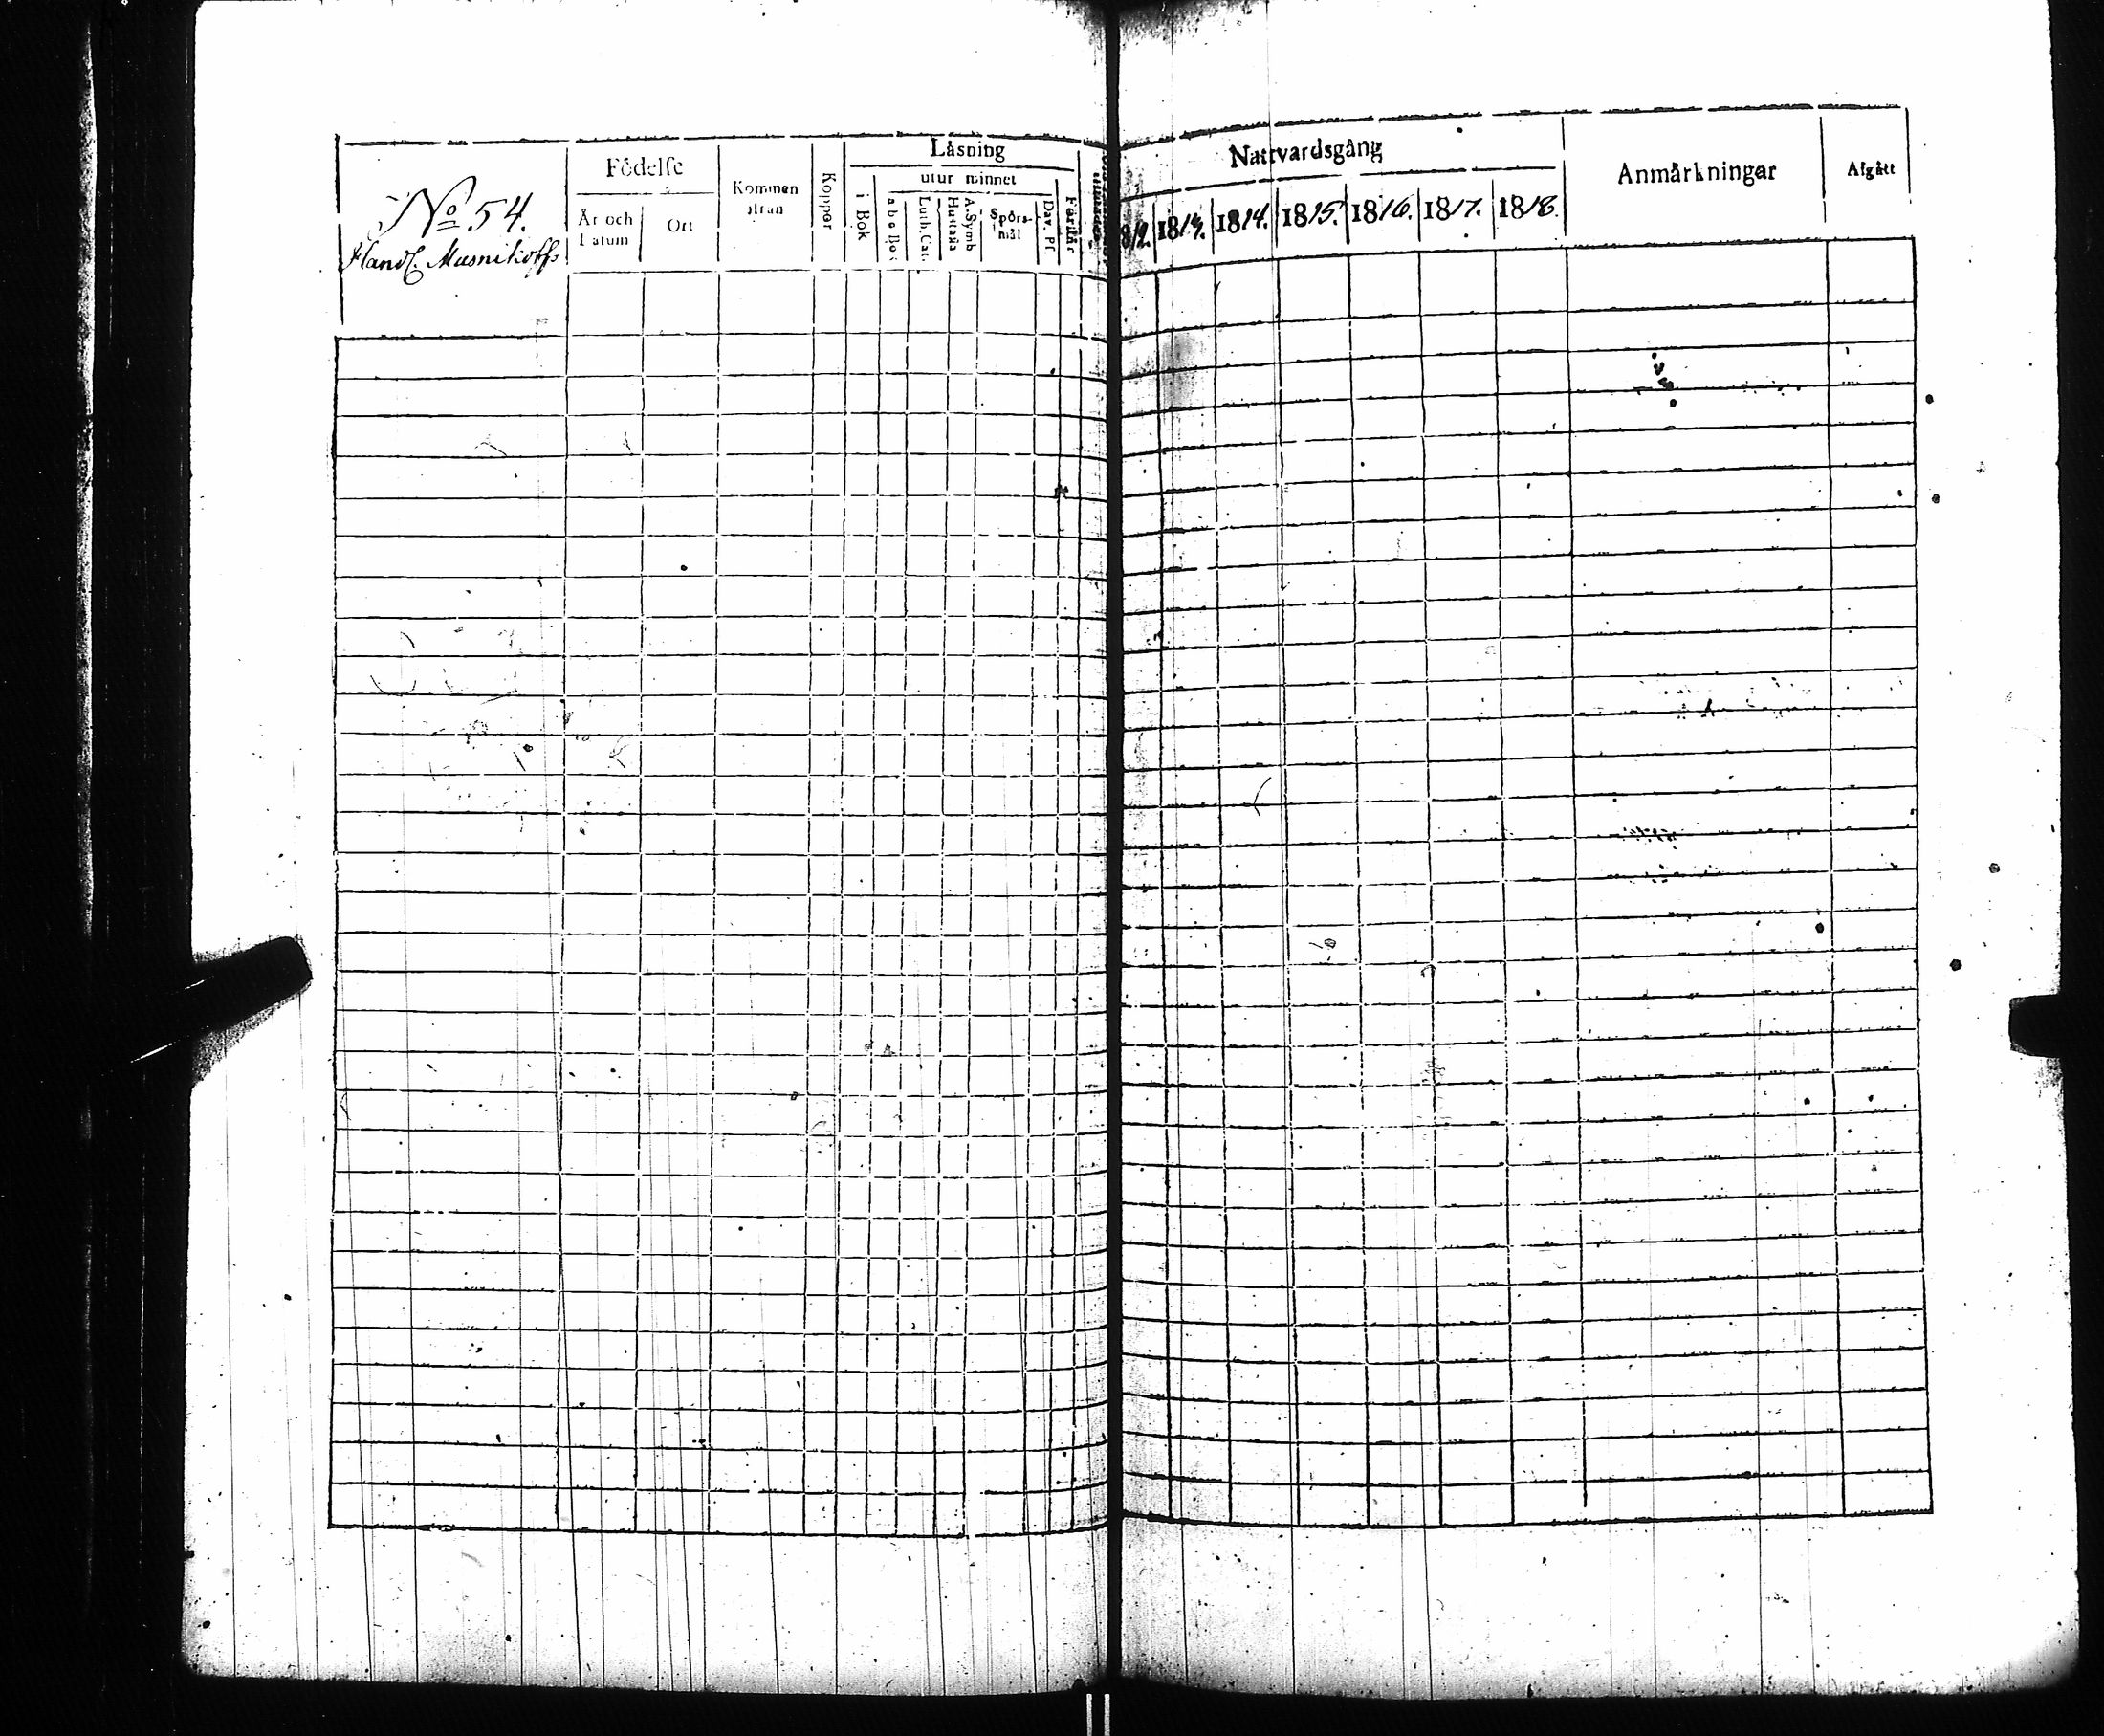 No 54.
Handl. Masnikoffs
Födelse
År och
Datum
Ort
Kommen
ifrån
Koppor
Läsning
i Bok
utur minnet
a b c Bok
Luth. Cat.
Hustafla
A. Symb
Spörs-
mål
Dav. Ps.
Förstår
Nattvardsgång
1812.
1813.
1814.
1815.
1816.
1817.
1818.
Anmärkningar
Afgått